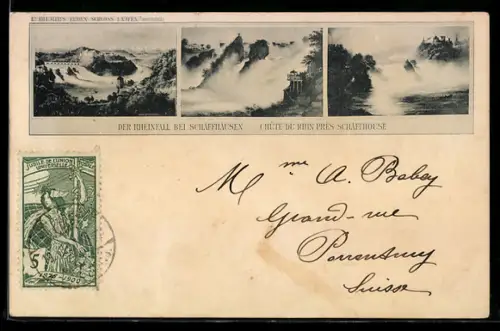 DER RHEINFALL BEI SCHAFFHAUSEN CHUTE DU RHIN PRÈS SCHAFFHOUSE
JUBILÉ DE L'UNION
POSTALE UNIVERSELLE
5
1875-1900
Mme A. Babey
Grand-rue
Porrentruy
Suisse